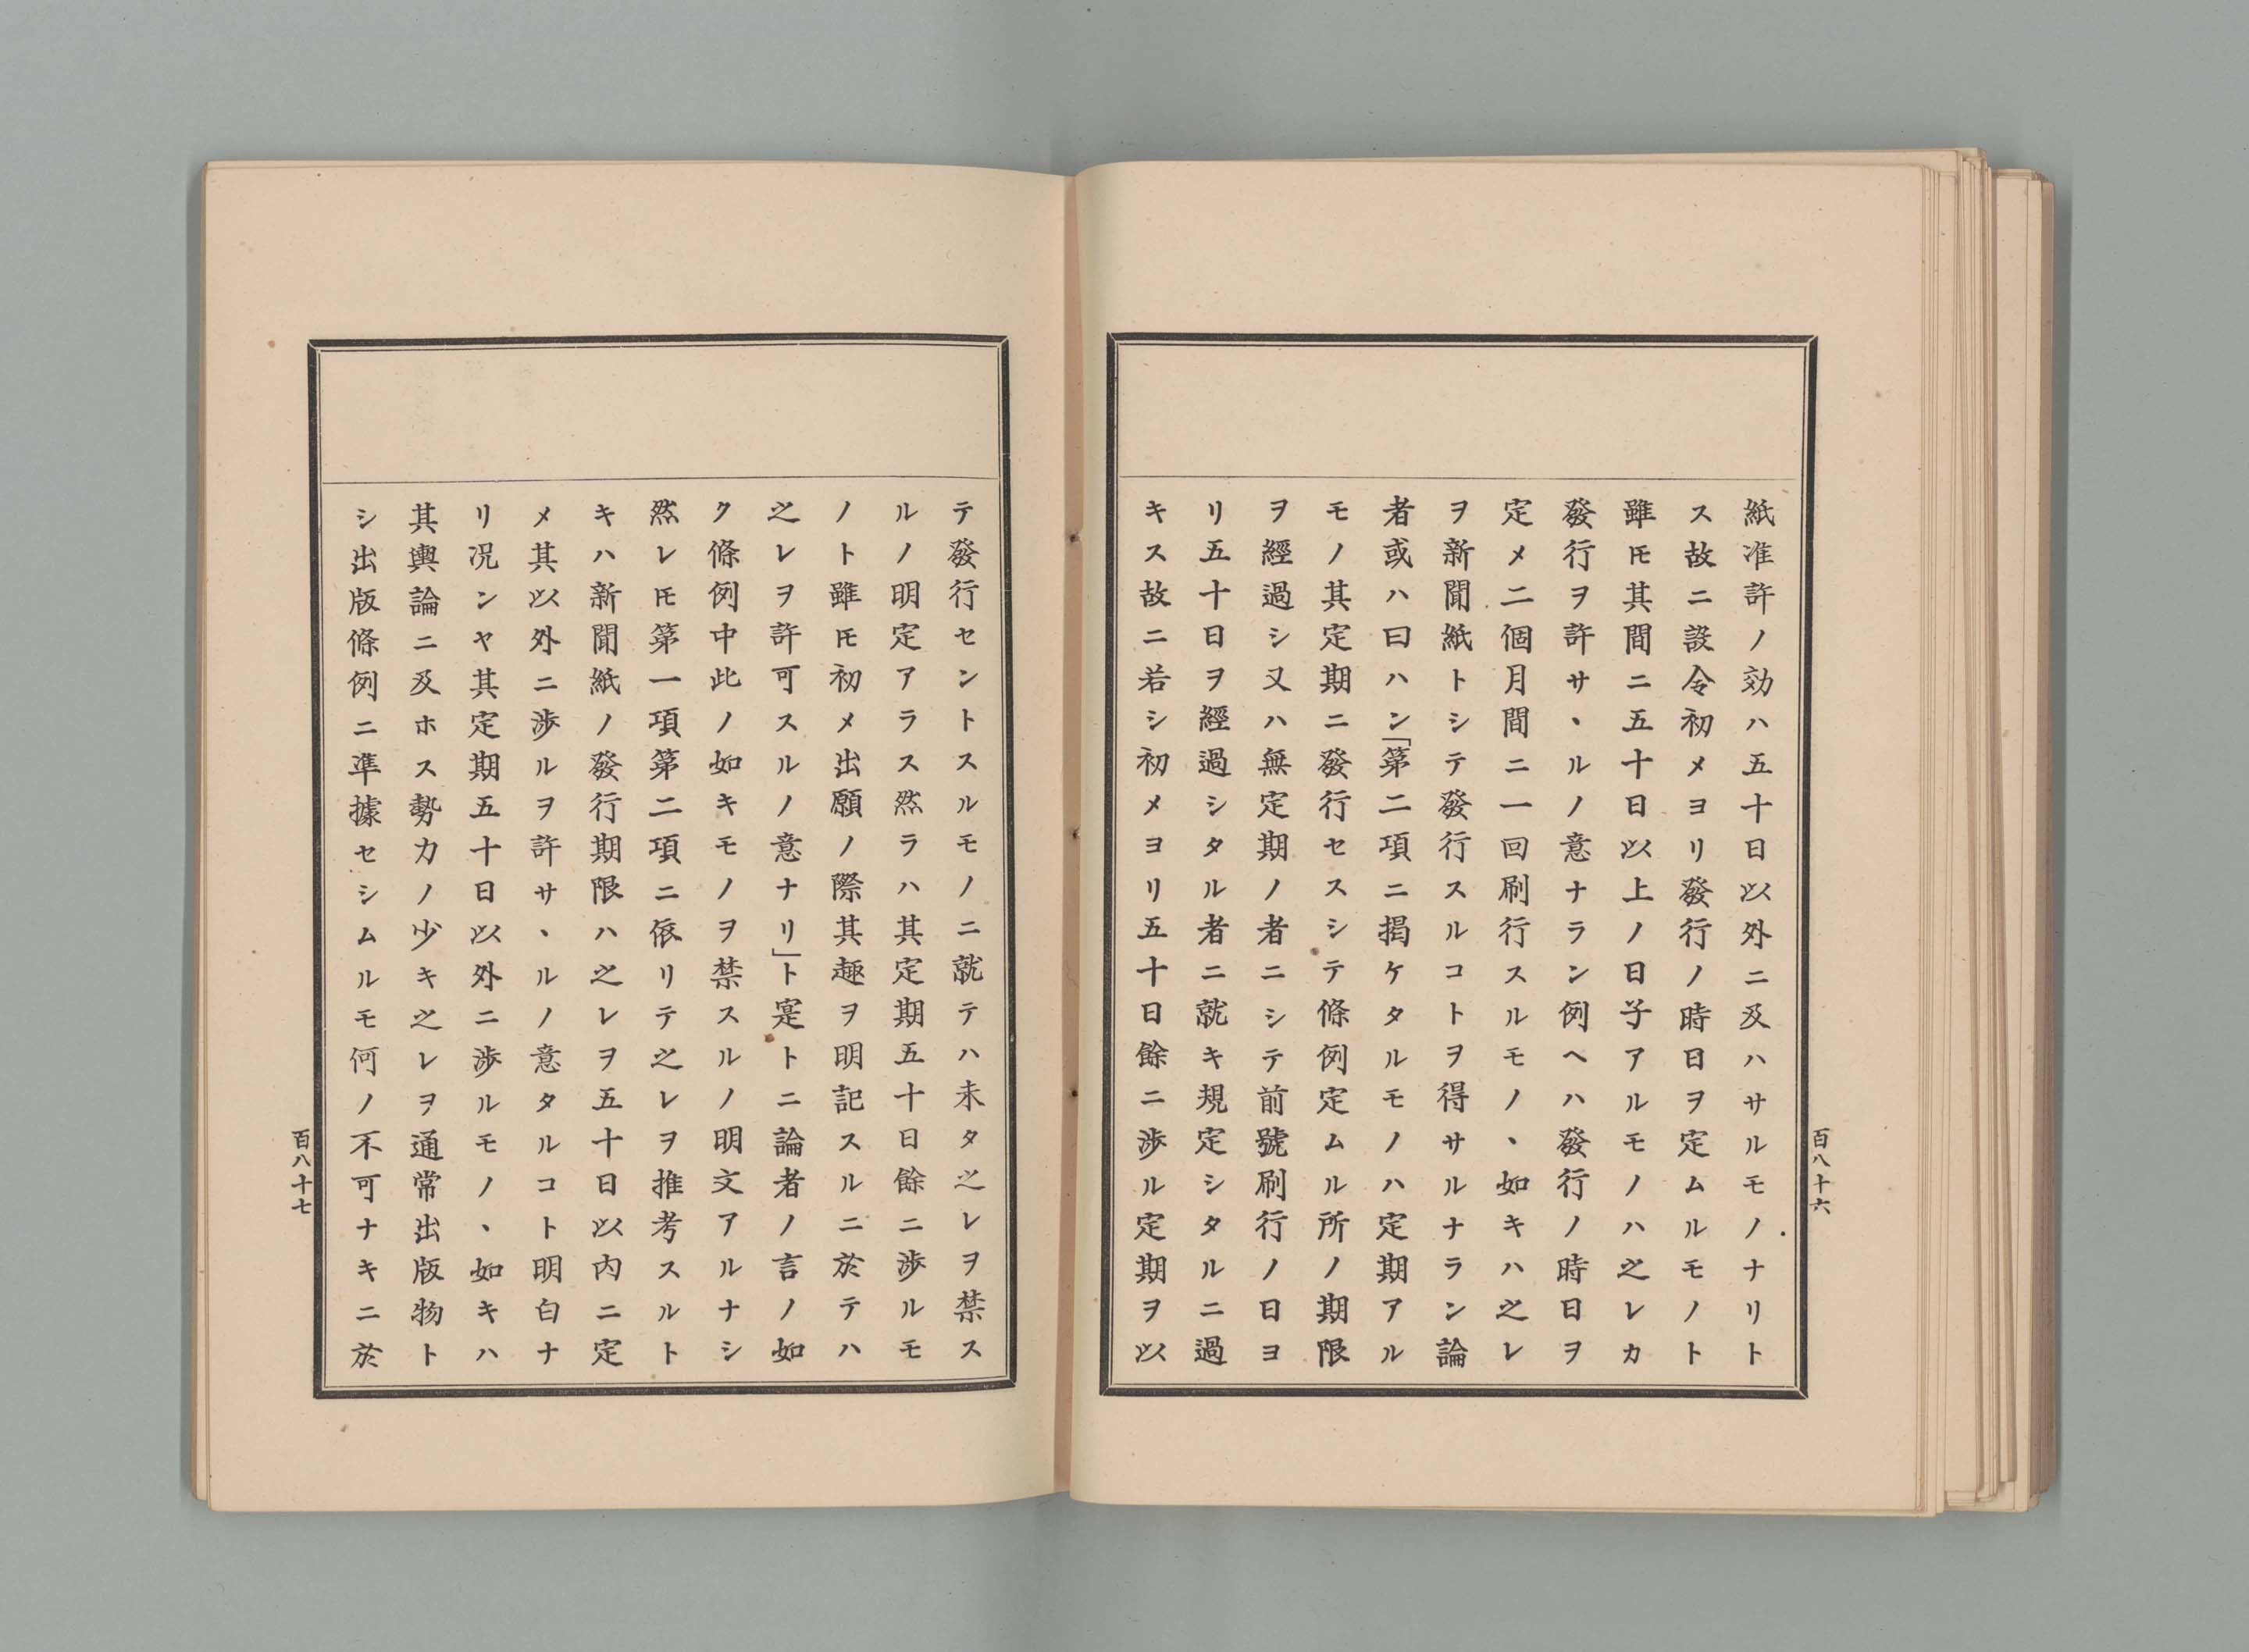 紙准許ノ効ハ五十日以外ニ及ハサルモノナリト
ス故ニ設令初メヨリ發行ノ時日ヲ定ムルモノト
雖𪜈其間ニ五十日以上ノ日子アルモノハ之レカ
發行ヲ許サヽルノ意ナラン例ヘハ發行ノ時日ヲ
定メ二個月間ニ一回刷行スルモノヽ如キハ之レ
ヲ新聞紙トシテ發行スルコトヲ得サルナラン論
者或ハ曰ハン「第二項ニ掲ケタルモノハ定期アル
モノ其定期ニ發行セスシテ條例定ムル所ノ期限
ヲ經過シ又ハ無定期ノ者ニシテ前號刷行ノ日ヨ
リ五十日ヲ經過シタル者ニ就キ規定シタルニ過
キス故ニ若シ初メヨリ五十日餘ニ渉ル定期ヲ以
百八十六
テ發行セントスルモノニ就テハ未タ之レヲ禁ス
ルノ明定アラス然ラハ其定期五十日餘ニ渉ルモ
ノト雖𪜈初メ出願ノ際其趣ヲ明記スルニ於テハ
之レヲ許可スルノ意ナリ」ト寔トニ論者ノ言ノ如
ク條例中此ノ如キモノヲ禁スルノ明文アルナシ
然レ𪜈第一項第二項ニ依リテ之レヲ推考スルト
キハ新聞紙ノ發行期限ハ之レヲ五十日以内ニ定
メ其以外ニ渉ルヲ許サヽルノ意タルコト明白ナ
リ况ンヤ其定期五十日以外ニ渉ルモノヽ如キハ
其輿論ニ及ホス勢力ノ少キ之レヲ通常出版物ト
シ出版條例ニ準據セシムルモ何ノ不可ナキニ於
百八十七